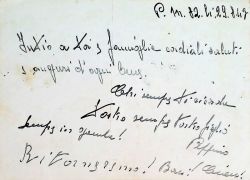 P. M. 82. li 29.8.42
Invio a Voi famiglia cordiali saluti
e auguri d'ogni bene.
Chi sempre Vi ricorda
Vostro sempre Vostro figlio
sempre in gamba! Peppino
Ritorneremo! Baci!